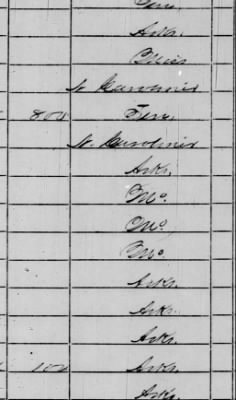 Arks.
Miss
N. Carolina
800 Ten.
N. Carolina
Arks.
Mo.
Mo.
Mo.
Arks.
Arks.
Arks.
100 Arks.
Arks.